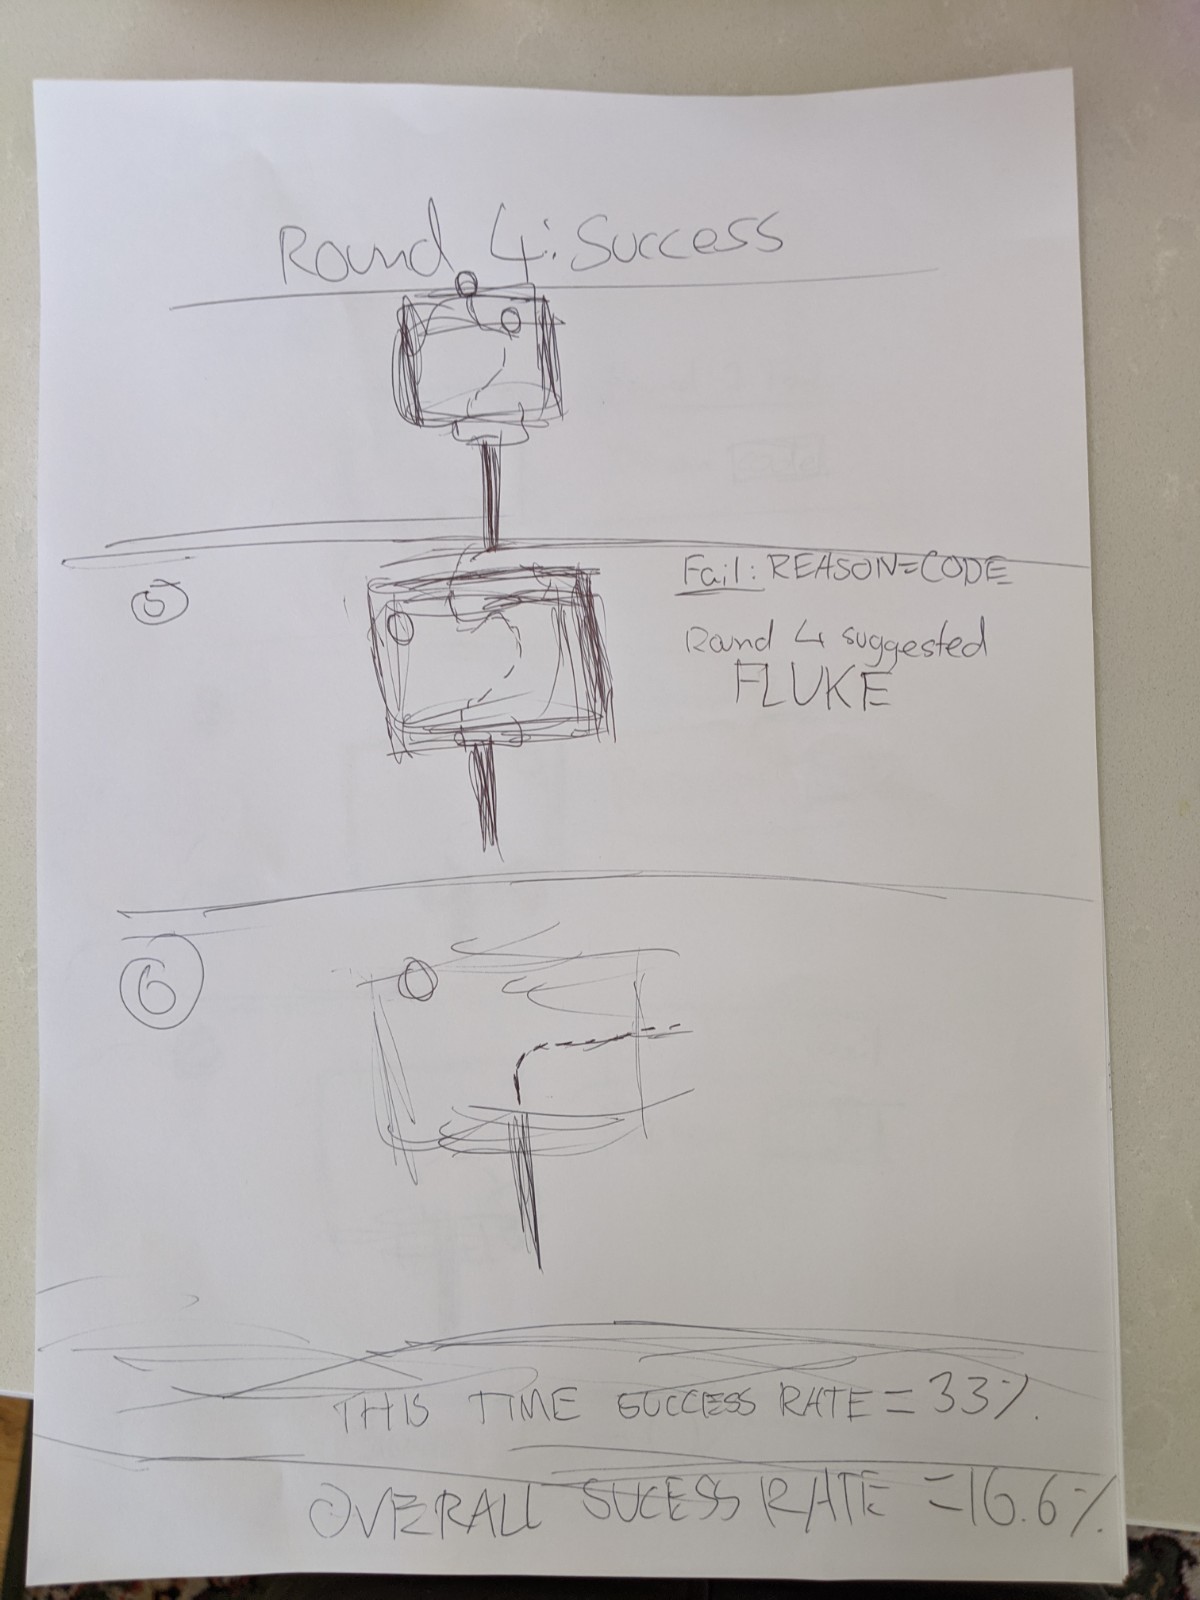 Round 4: Success
5
Fail: REASON=CODE
Round 4 suggested
FLUKE
6
THIS TIME SUCCESS RATE = 33%.
OVERALL SUCESS RATE = 16.6%